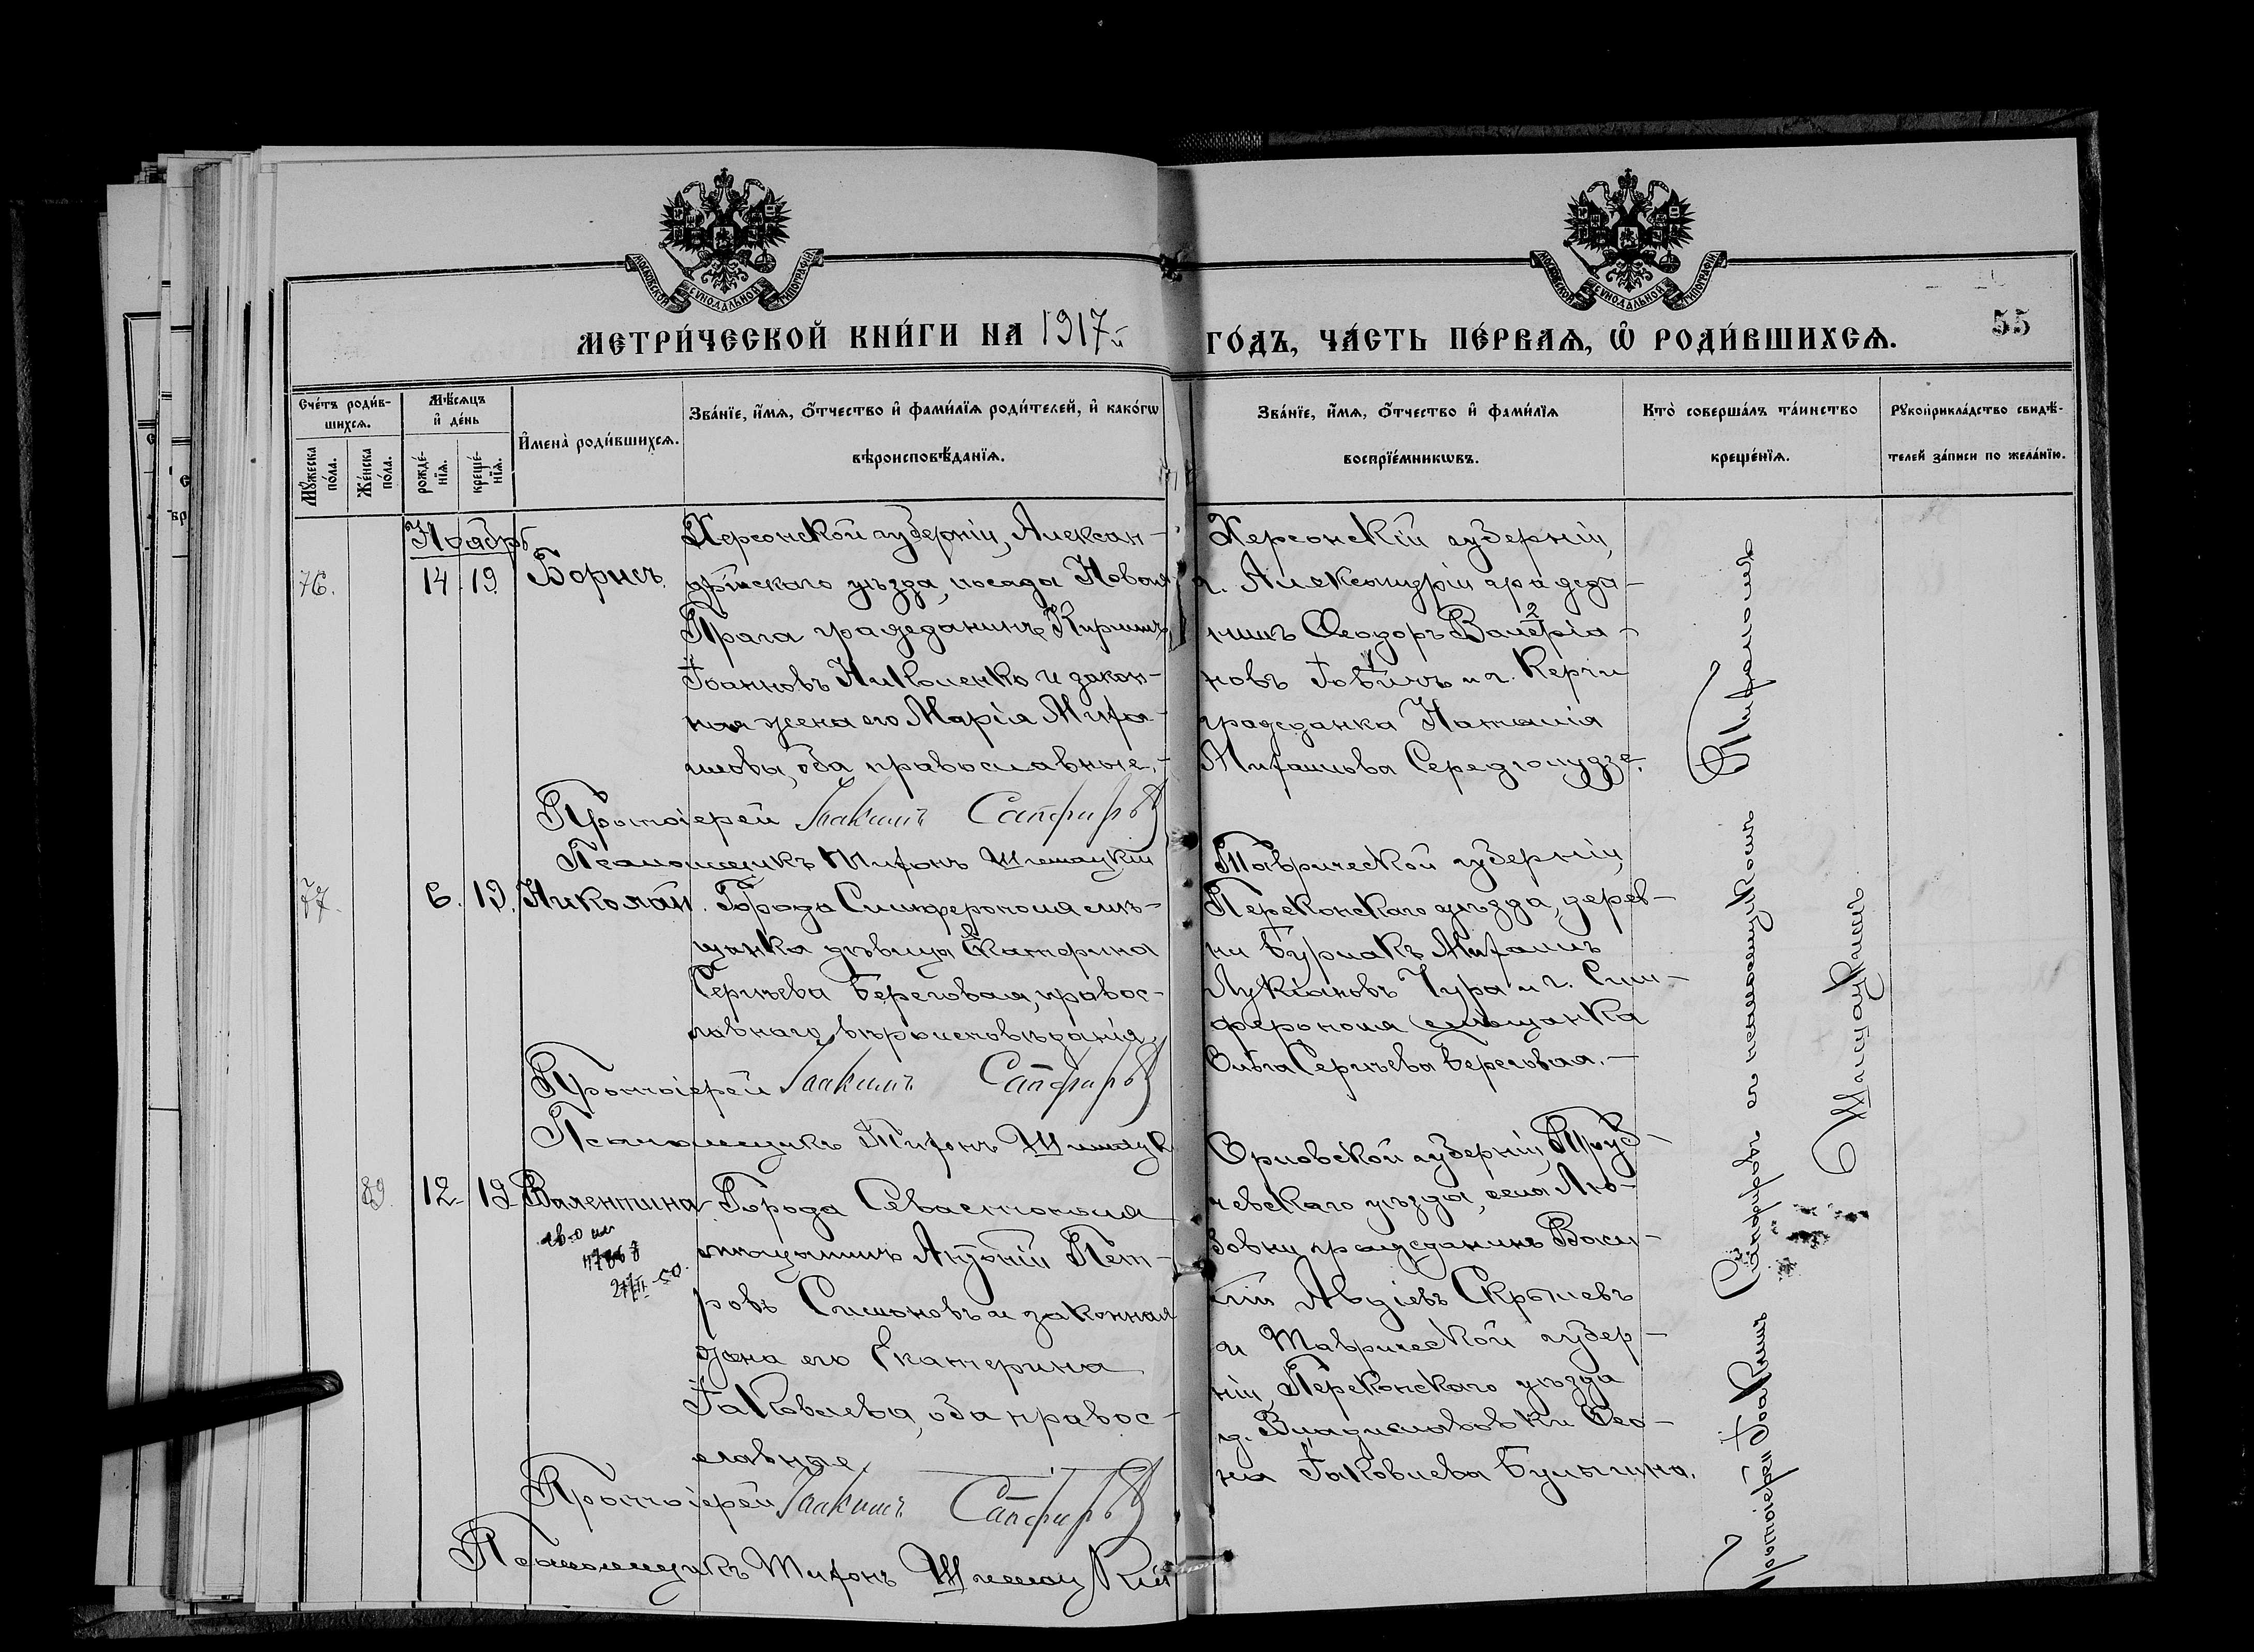 МОСКОВСКОЙ СѴНОДАЛЬНОЙ ТИПОГРАФІИ
МОСКОВСКОЙ СѴНОДАЛЬНОЙ ТИПОГРАФІИ
МЕТРИ́ЧЕСКОЙ КНИ́ГИ НА 1917-й
ГО́ДЪ, ЧА́СТЬ ПЕ́РВАѦ, Ѡ҆ РОДИ́ВШИХСѦ.
55
Сче́тъ роди́в-
шихсѧ.
Мꙋ́жеска
по́ла.
Же́нска
по́ла.
Мѣ́сѧцъ
и҆ де́нь
рожде́-
нїѧ.
креще́-
нїѧ.
И҆мена̀ роди́вшихсѧ.
Зва́нїе, и҆́мѧ, ѻ҆́тчество и҆ фами́лїѧ роди́телей, и҆ како́гѡ
вѣроисповѣ́данїѧ.
Зва́нїе, и҆́мѧ, ѻ҆́тчество и҆ фами́лїѧ
воспрїе́мникѡвъ.
Кто̀ соверша́лъ та́инство
креще́нїѧ.
Рꙋкоприкла́дство свидѣ́-
телей за́писи по жела́нїю.
Ноябрь
76.
14. 19.
Борисъ.
Херсонской губерніи, Алексан-
дрійскаго уѣзда, посада Новая
Прага гражданинъ Кириллъ
Іоанновъ Николенко и закон-
ная жена его Марія Михаи-
лова, оба православные.-
Херсонскій губерніи,
г. Александріи гражда-
нинъ Ѳеодоръ Валеріа-
новъ и г. Керчи
гражданка Наталія
Михаилова
Протоіерей Іоакимъ Сапфировъ
Псаломщикъ Тихонъ Шимацкій
77.
6. 19.
Николай.
Города Симферополя мѣ-
щанка дѣвица Екатерина
Сергѣева Береговая, правос-
лавнаго вѣроисповѣданія.
Таврической губерніи,
Перекопскаго уѣзда, дерев-
ни Бурлакъ Михаилъ
Лукіановъ Чура и г. Сим-
ферополя мѣщанка
Ольга Сергѣева Береговая.-
Протоіерей Іоакимъ Сапфировъ
Псаломщикъ Тихонъ Шимацк
89.
12. 19.
Валентина
27/II-50.
Города Севастополя
мѣщанинъ Антоній Пет-
ровъ Симоновъ и законная
жена его Екатерина
Іаковлева, оба правос-
лавные.
Орловской губерніи, Труб-
чевскаго уѣзда, села Лю-
бовны гражданинъ Васи-
лій Авдіевъ Скрылевъ
и Таврической губер-
ніи, Перекопскаго уѣзда
д. Владиславовки Ѳео-
на Іаковлева Булыгина.
Протоіерей Іоакимъ Сапфировъ
Псаломщикъ Тихонъ Шимацкій
Протоіерей Іоакимъ Сапфировъ съ псаломщикомъ Тихономъ
Шимацкимъ.